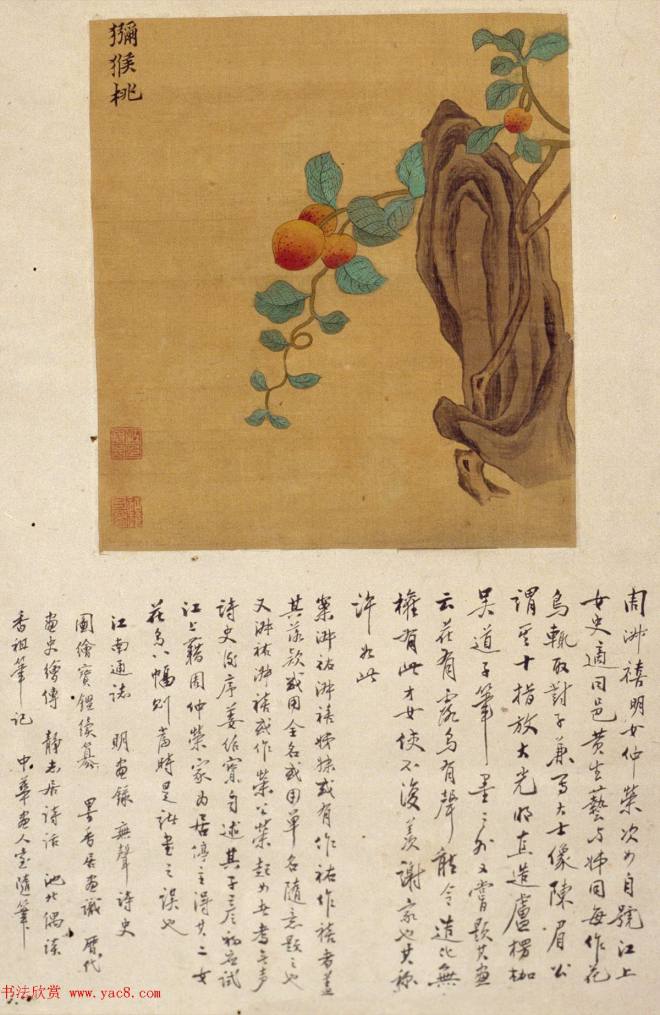 獼猴桃
周淑禧明女仲榮次女自號江上
女史適同邑黄生藝与姊同每作花
鳥輒取對手兼寫大士像陳眉公
謂其十指放大光明直造盧楞枷
吴道子筆墨之外又嘗題其畫
云花有露鳥有聲能令造化無
權有此才女使不復羡謝家也其称
許如此
案淑祜淑禧姊妹或有作祜作禧者蓋
其落款或用全名或用單名隨意題之也
又淑祜淑禧或作榮公榮起女者無声
詩史序姜自述其子初应試
江上藉周仲榮家为居停主得其二女
花鳥八幅則當時是畫之误也
江南通志 明畫錄 無聲詩史
圖繪寶鑑续纂 墨香居畫識 歷代
畫史繪傳 靜志居詩话 池北偶谈
香祖筆記 中華畫人室隨筆
书法欣赏 www.yac8.com